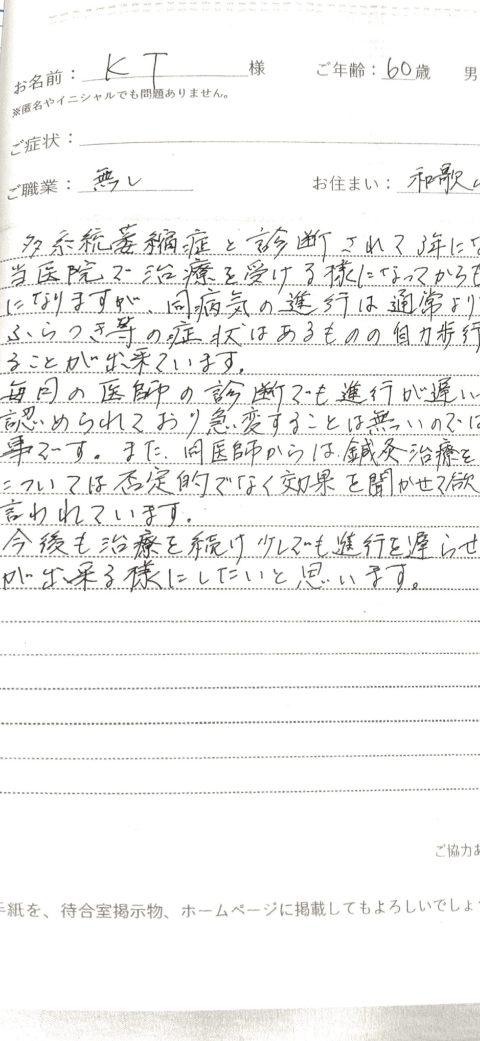 お名前： KT 様 ご年齢：60歳 男
※匿名やイニシャルでも問題ありません。
ご症状：
ご職業： 無し お住まい： 和歌山
多系統萎縮症と診断されて3年にな
当医院で治療を受ける様になってからも
になりますが、同病気の進行は通常より
ふらつき等の症状はあるものの自力歩行
ることが出来ています。
毎月の医師の診断でも進行が遅い
認められており急変することは無いのでは
事です。また、同医師からは鍼灸治療を
については否定的でなく効果を聞かせて欲
言われています。
今後も治療を続け少しでも進行を遅らせ
が出来る様にしたいと思います。
ご協力あ
手紙を、待合室掲示物、ホームページに掲載してもよろしいでしょ